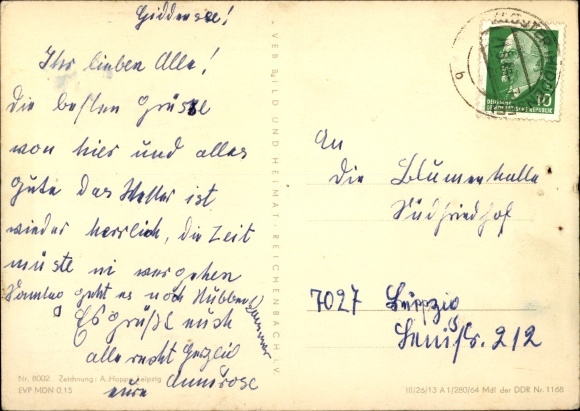 Giddensee!
Ihr lieben Alle!
die besten Grüsse
von hier und alles
gute das Wetter ist
wieder herrlich, die Zeit
müste ni vergehen
Sonntag geht es noch
Es grüßt euch
alle recht herzlich
eure Annerose
VEB BILD UND HEIMAT REICHENBACH i. V.
DEUTSCHE
DEMOKRATISCHE REPUBLIK
10
An
die Blumenhalle
Südfriedhof
7027 Leipzig
212
Nr. 8002 Zeichnung: A. Hoppe, Leipzig
EVP MDN 0,15
III/26/13 A 1/280/64 Mdl der DDR Nr. 1168